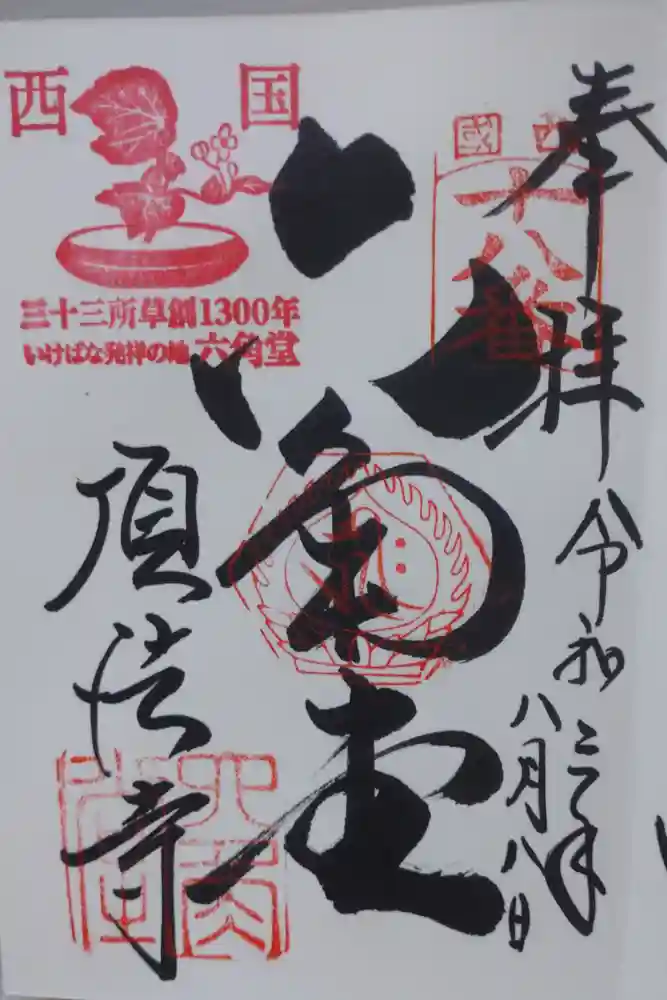 奉拝
令和三年
八月八日
西国
十八番
六角堂
西国
三十三所草創1300年
いけばな発祥の地 六角堂
頂法寺